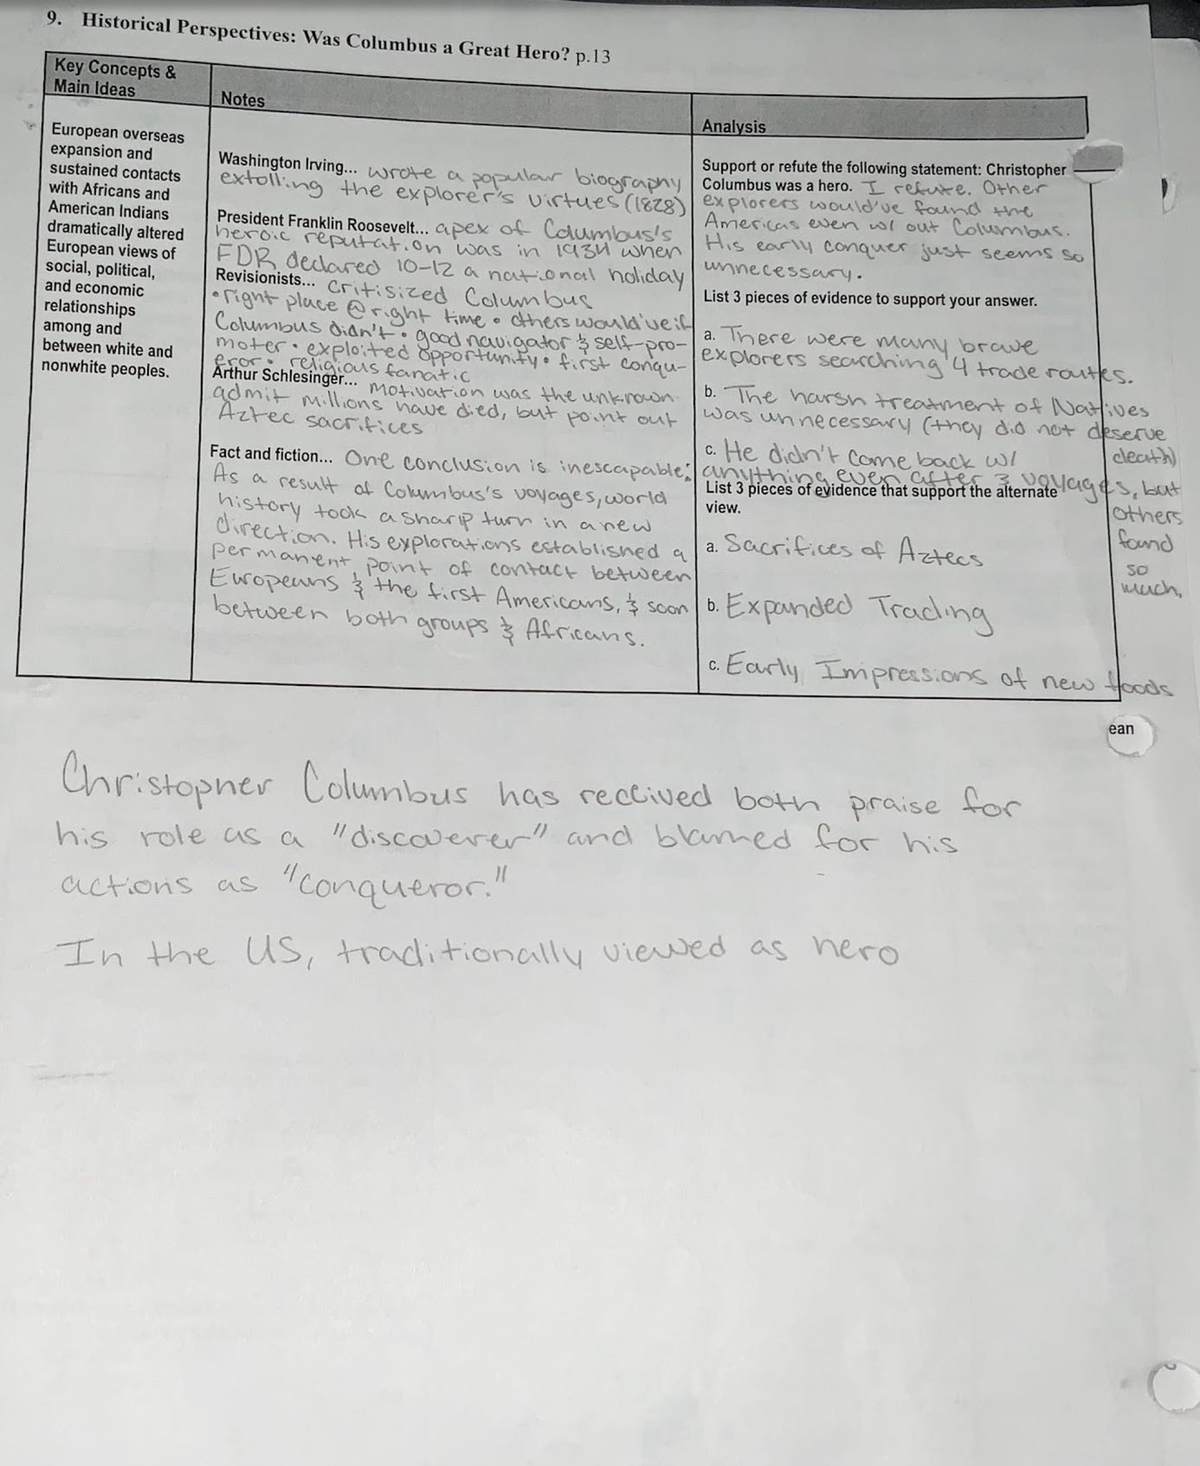 9. Historical Perspectives: Was Columbus a Great Hero? p.13
Key Concepts &
Main Ideas
Notes
Analysis
European overseas
expansion and
sustained contacts
with Africans and
American Indians
dramatically altered
European views of
social, political,
and economic
relationships
among and
between white and
nonwhite peoples.
Washington Irving... wrote a popular biography
extolling the explorer's virtues (1828)
President Franklin Roosevelt... apex of Columbus's
heroic reputation was in 1934 when
FDR declared 10-12 a national holiday
Revisionists... Critisized Columbus
• right place @ right time • others would've if
Columbus didn't • good navigator & self-pro-
moter • exploited opportunity • first conqu-
eror • religious fanatic
Arthur Schlesinger... Motivation was the unknown.
admit millions have died, but point out
Aztec sacrifices
Fact and fiction... One conclusion is inescapable:
As a result of Columbus's voyages, world
history took a sharp turn in a new
direction. His explorations established a
permanent point of contact between
Europeans & the first Americans, & soon
between both groups & Africans.
Support or refute the following statement: Christopher
Columbus was a hero. I refute. Other
explorers would've found the
Americas even w/ out Columbus.
His early conquer just seems so
unnecessary.
List 3 pieces of evidence to support your answer.
a. There were many brave
explorers searching 4 trade routes.
b. The harsh treatment of Natives
was unnecessary (they did not deserve
death)
c. He didn't come back w/
anything even after 3 voyages, but
others
found
so
much.
List 3 pieces of evidence that support the alternate
view.
a. Sacrifices of Aztecs
b. Expanded Trading
c. Early Impressions of new foods
ean
Christopher Columbus has received both praise for
his role as a "discoverer" and blamed for his
actions as "conqueror."
In the US, traditionally viewed as hero